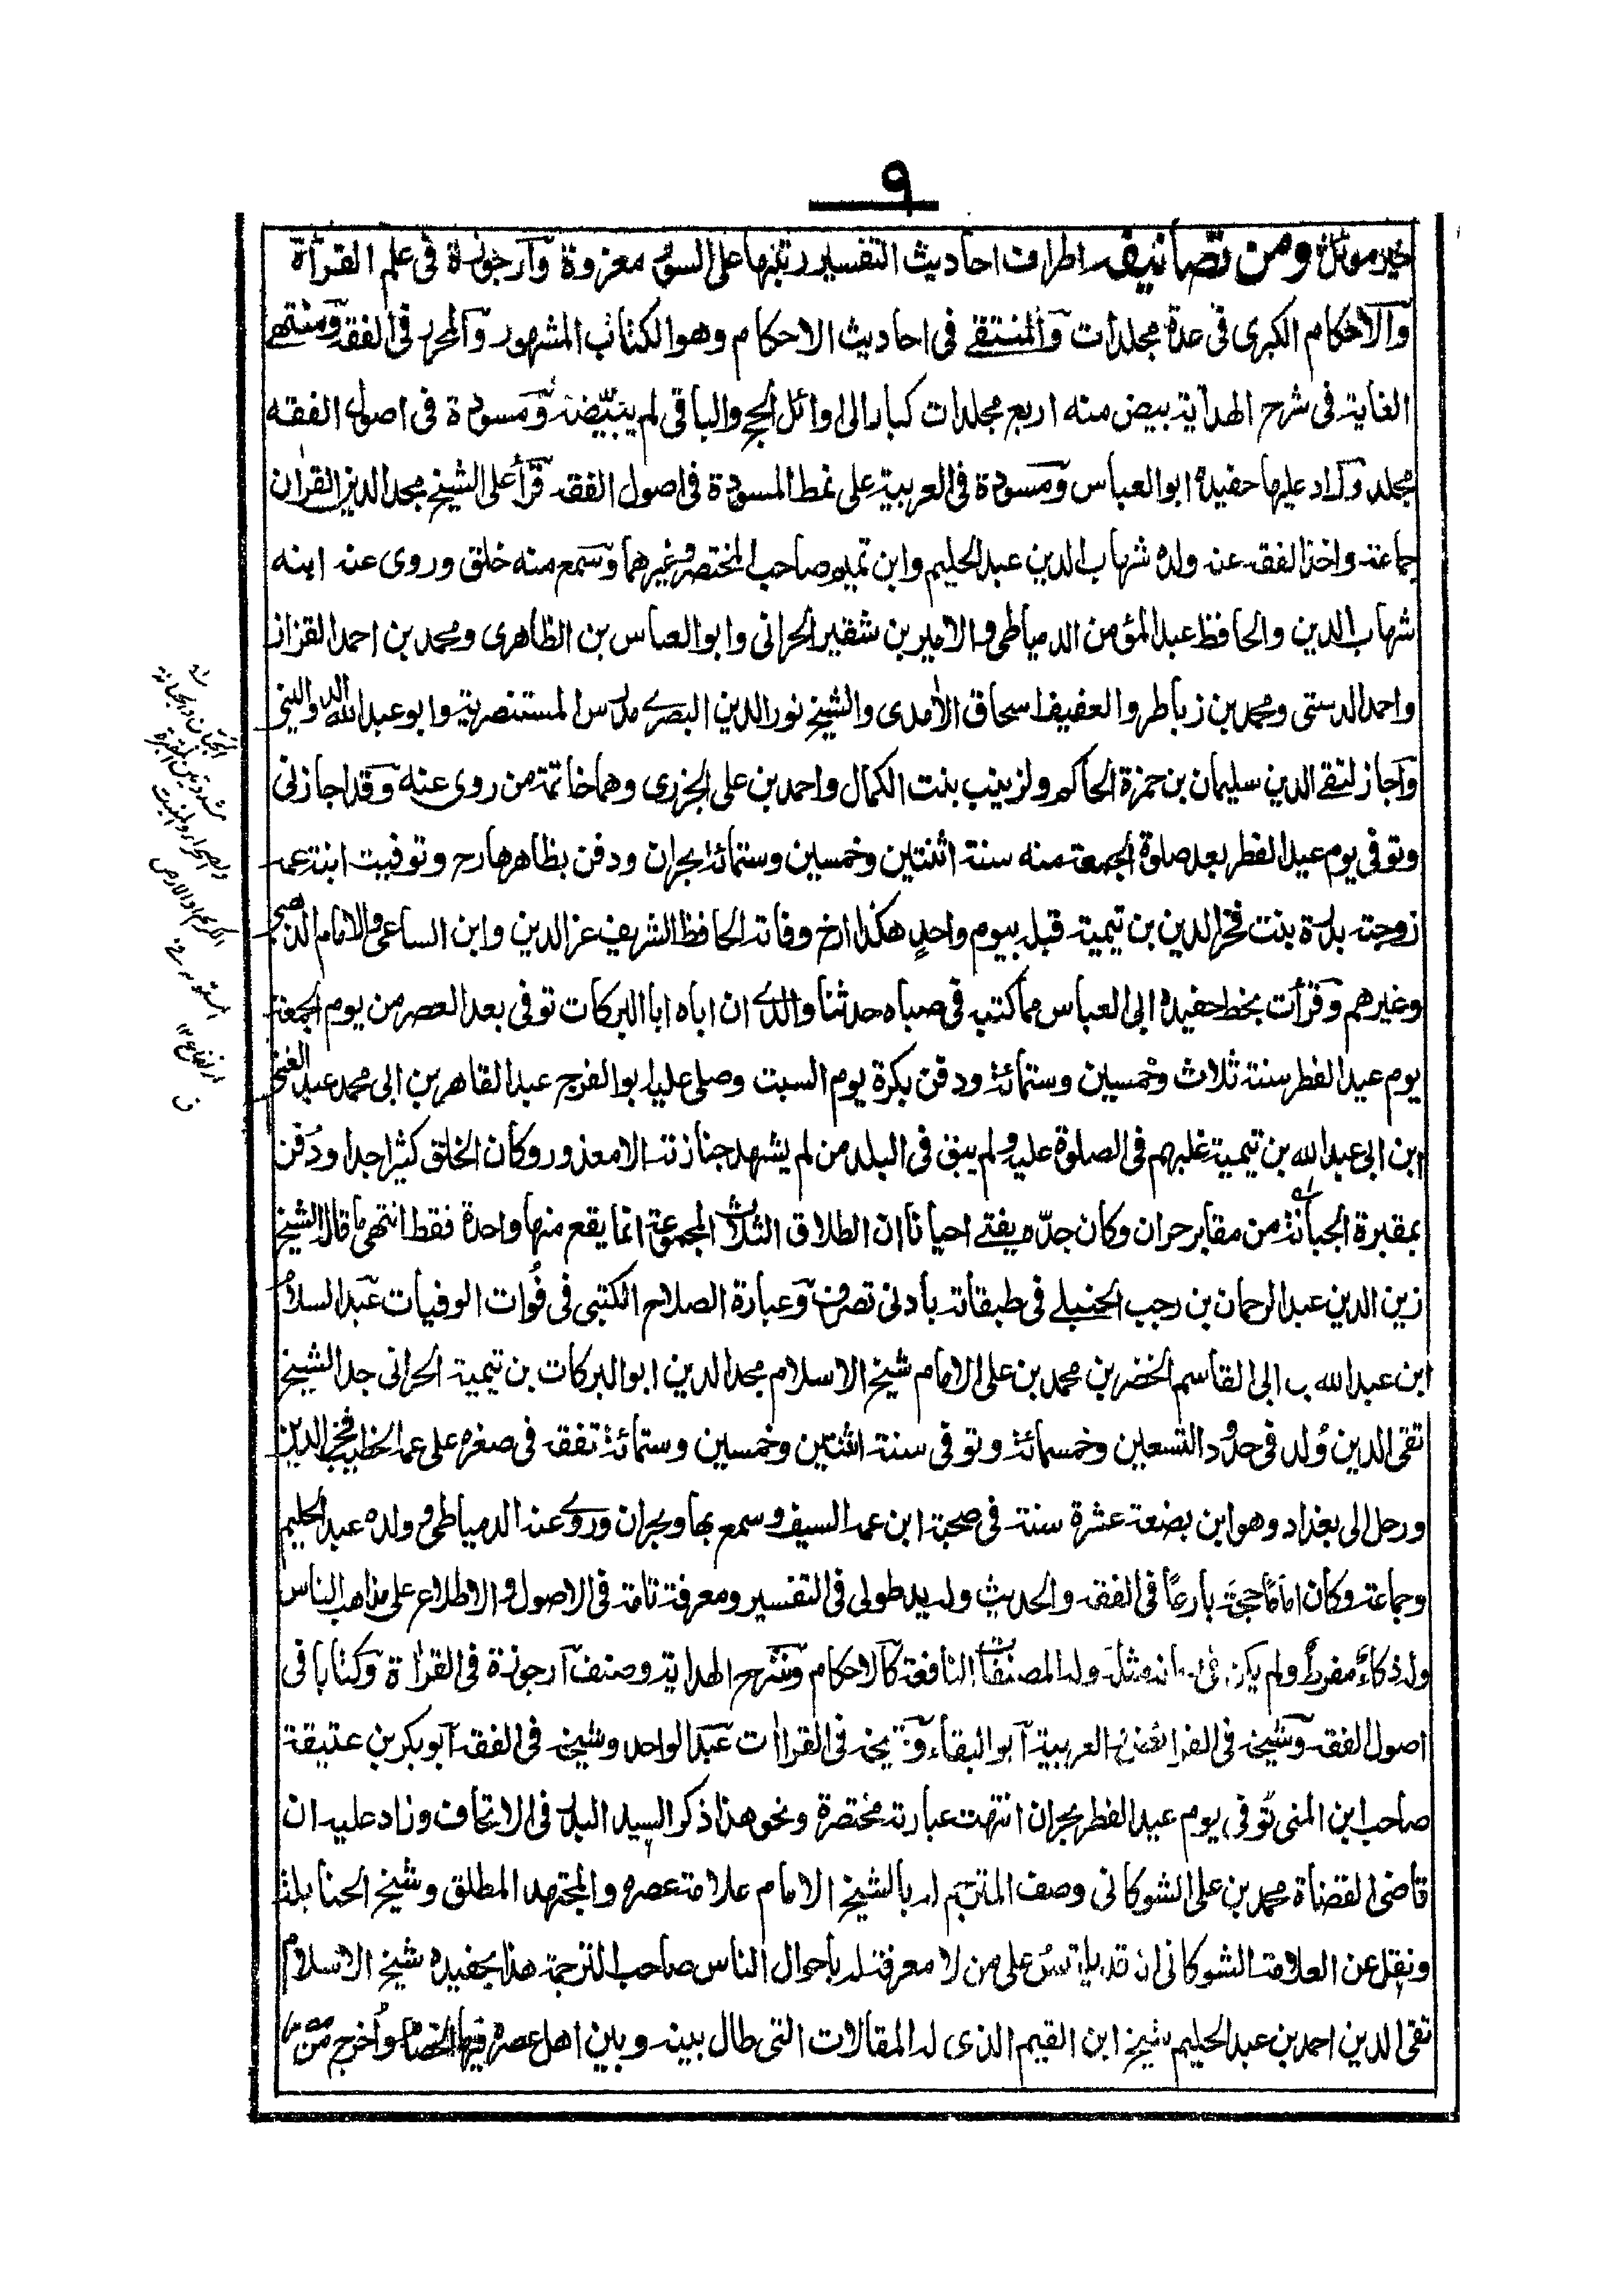 ٩
خير موئل ومن تصانيفه اطراف احاديث التفسير رتبها على السور معزوة وارجوزة فى علم القرأة
والاحكام الكبرى فى عدة مجلدات والمنتقے فى احاديث الاحكام وهو الكتاب المشهور والمحرر فى الفقه ومنتهے
الغاية فى شرح الهداية بيض منه اربع مجلدات كبار الى اوائل الحج والباقى لم يبيّضه ومسودة فى اصول الفقه
مجلد وزاد عليها حفيده ابو العباس ومسودة فى العربية على نمط المسودة فى اصول الفقه قرأ على الشيخ مجد الدين القران
جماعة واخذ الفقه عنه ولده شهاب الدين عبد الحليم وابن تميم صاحب المختصر وغيرهما وسمع منه خلق وروى عنه ابنه
شهاب الدين والحافظ عبد المؤمن الدمياطى والامير بن شقير الحرانى وابو العباس بن الظاهرى ومحمد بن احمد القزاز
واحمد الدستى ومحمد بن زباطر والعفيف اسحاق الأمدى والشيخ نور الدين البصرے مدرس المستنصرية وابو عبد الله
واجاز لتقے الدين سليمان بن حمزة الحاكم ولزينب بنت الكمال واحمد بن على الجزرى وهما خاتمة من روى عنه وقد اجازنى
وتوفى يوم عيد الفطر بعد صلوة الجمعة منه سنة اثنتين وخمسين وستمائة بحران ودفن بظاهرها رح وتوفيت ابنة عمه
زوجته بدرة بنت فخر الدين بن تيمية قبله بيوم واحدٍ هكذا ارخ وفاته الحافظ الشريف عز الدين وابن الساعى والامام الذهبى
وغيرهم وقرأت بخط حفيده ابى العباس مما كتبه فى صباه حدثنا والدے ان اباه ابا البركات توفى بعد العصر من يوم الجمعة
يوم عيد الفطر سنة ثلاث وخمسين وستمائة ودفن بكرة يوم السبت وصلى عليه ابو الفرج عبد القاهر بن ابى محمد عبد الغنى
ابن ابى عبد الله بن تيمية غلبهم فى الصلوة عليه ولم يبق فى البلد من لم يشهد جنازته الا معذور وكان الخلق كثيرا جدا ودُفن
بمقبرة الجبانة من مقابر حران وكان جدّه يفتے احيانا ان الطلاق الثلاث المجموعة انما يقع منها واحدة فقط انتهى ما قال الشيخ
زين الدين عبد الرحمان بن رجب الحنبلے فى طبقاته بأدنى تصرف وعبارة الصلاح الكتبى فى فُوات الوفيات عبد السلام
ابن عبد الله ب ابى القاسم الخضر بن محمد بن على الامام شيخ الاسلام مجد الدين ابو البركات بن تيمية الحرانى جد الشيخ
تقى الدين وُلد فى حدود التسعين وخمسمائة وتوفى سنة اثنتين وخمسين وستمائة تفقه فى صغره على عمه الخطيب فخر الدين
ورحل الى بغداد وهو ابن بضعة عشرة سنة فى صحبة ابن عمه السيف وسمع بها وبحران وروے عنه الدمياطى و ولده عبد الحليم
وجماعة وكان امامًا حجةً بارعًا فى الفقه والحديث وله يد طولى فى التفسير ومعرفة تامة فى الاصول والاطلاع على مذاهب الناس
وله ذكاءٌ مفرطٌ ولم يكن فى زمانه مثله وله المصنفات النافعة كالاحكام وشرح الهداية وصنف ارجوزة فى القرأة وكتابا فى
اصول الفقه وشيخه فى الفرائض العربية ابو البقاء وشيخه فى القراأت عبد الواحد وشيخه فى الفقه ابو بكر بن عتيقة
صاحب ابن المنى توفى يوم عيد الفطر بحران انتهت عبارته مختصرة ونحو هذا ذكر السيد البدر فى الاتحاف وزاد عليه ان
قاضى القضاة محمد بن على الشوكانى وصف المترجم له بالشيخ الامام علامة عصره والمجتهد المطلق وشيخ الحنابلة
ونقل عن العلامة الشوكانى انه قد يلتبس على من لا معرفة له بأحوال الناس صاحب الترجمة هذا بحفيده شيخ الاسلام
تقى الدين احمد بن عبد الحليم شيخ ابن القيم الذى له المقالات التى طال بينه وبين اهل عصره فيها الخصام وأخرج من مصر